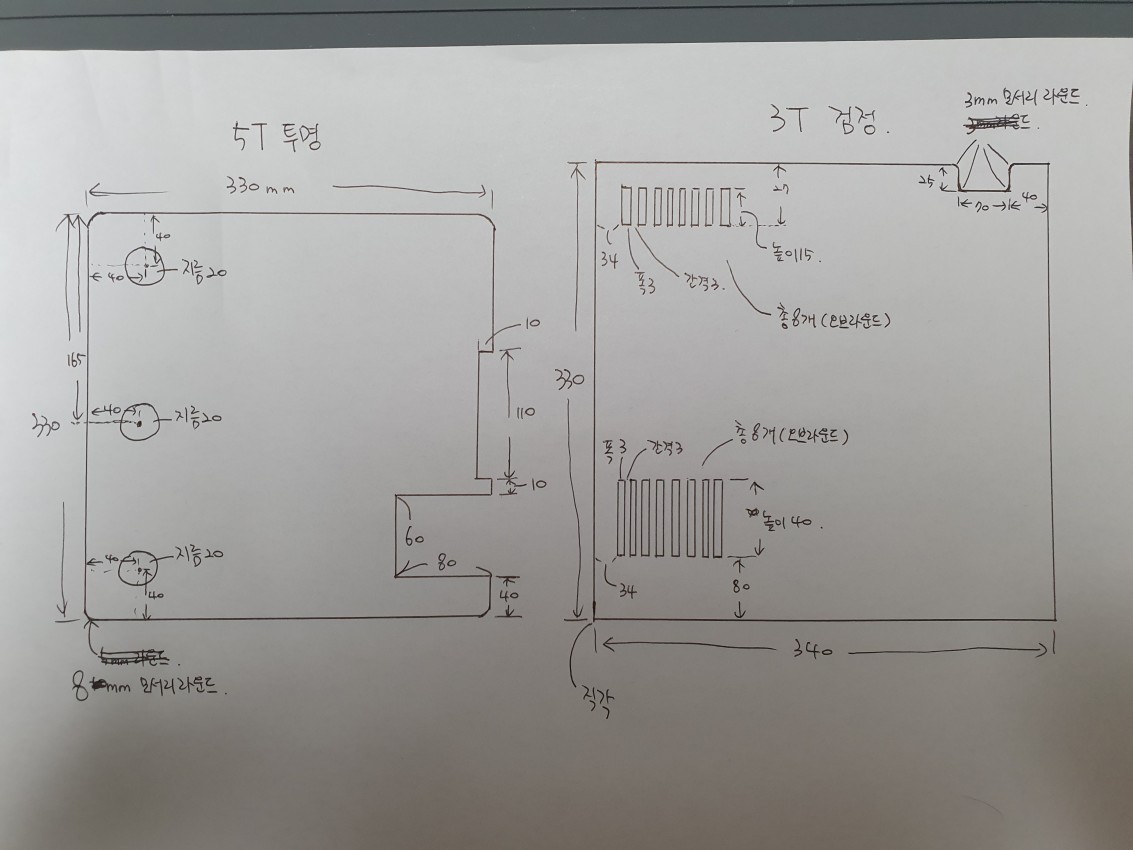 5T 투명
330mm
40
40
지름20
10
165
110
330
40
지름20
10
60
80
40
지름20
40
40
8mm 모서리 라운드.
3T 검정.
3mm 모서리 라운드.
25
70
40
27
34
폭3
간격3.
높이15.
총8개(오브라운드)
330
폭3
간격3
총8개(오브라운드)
높이 40.
34
80
340
직각